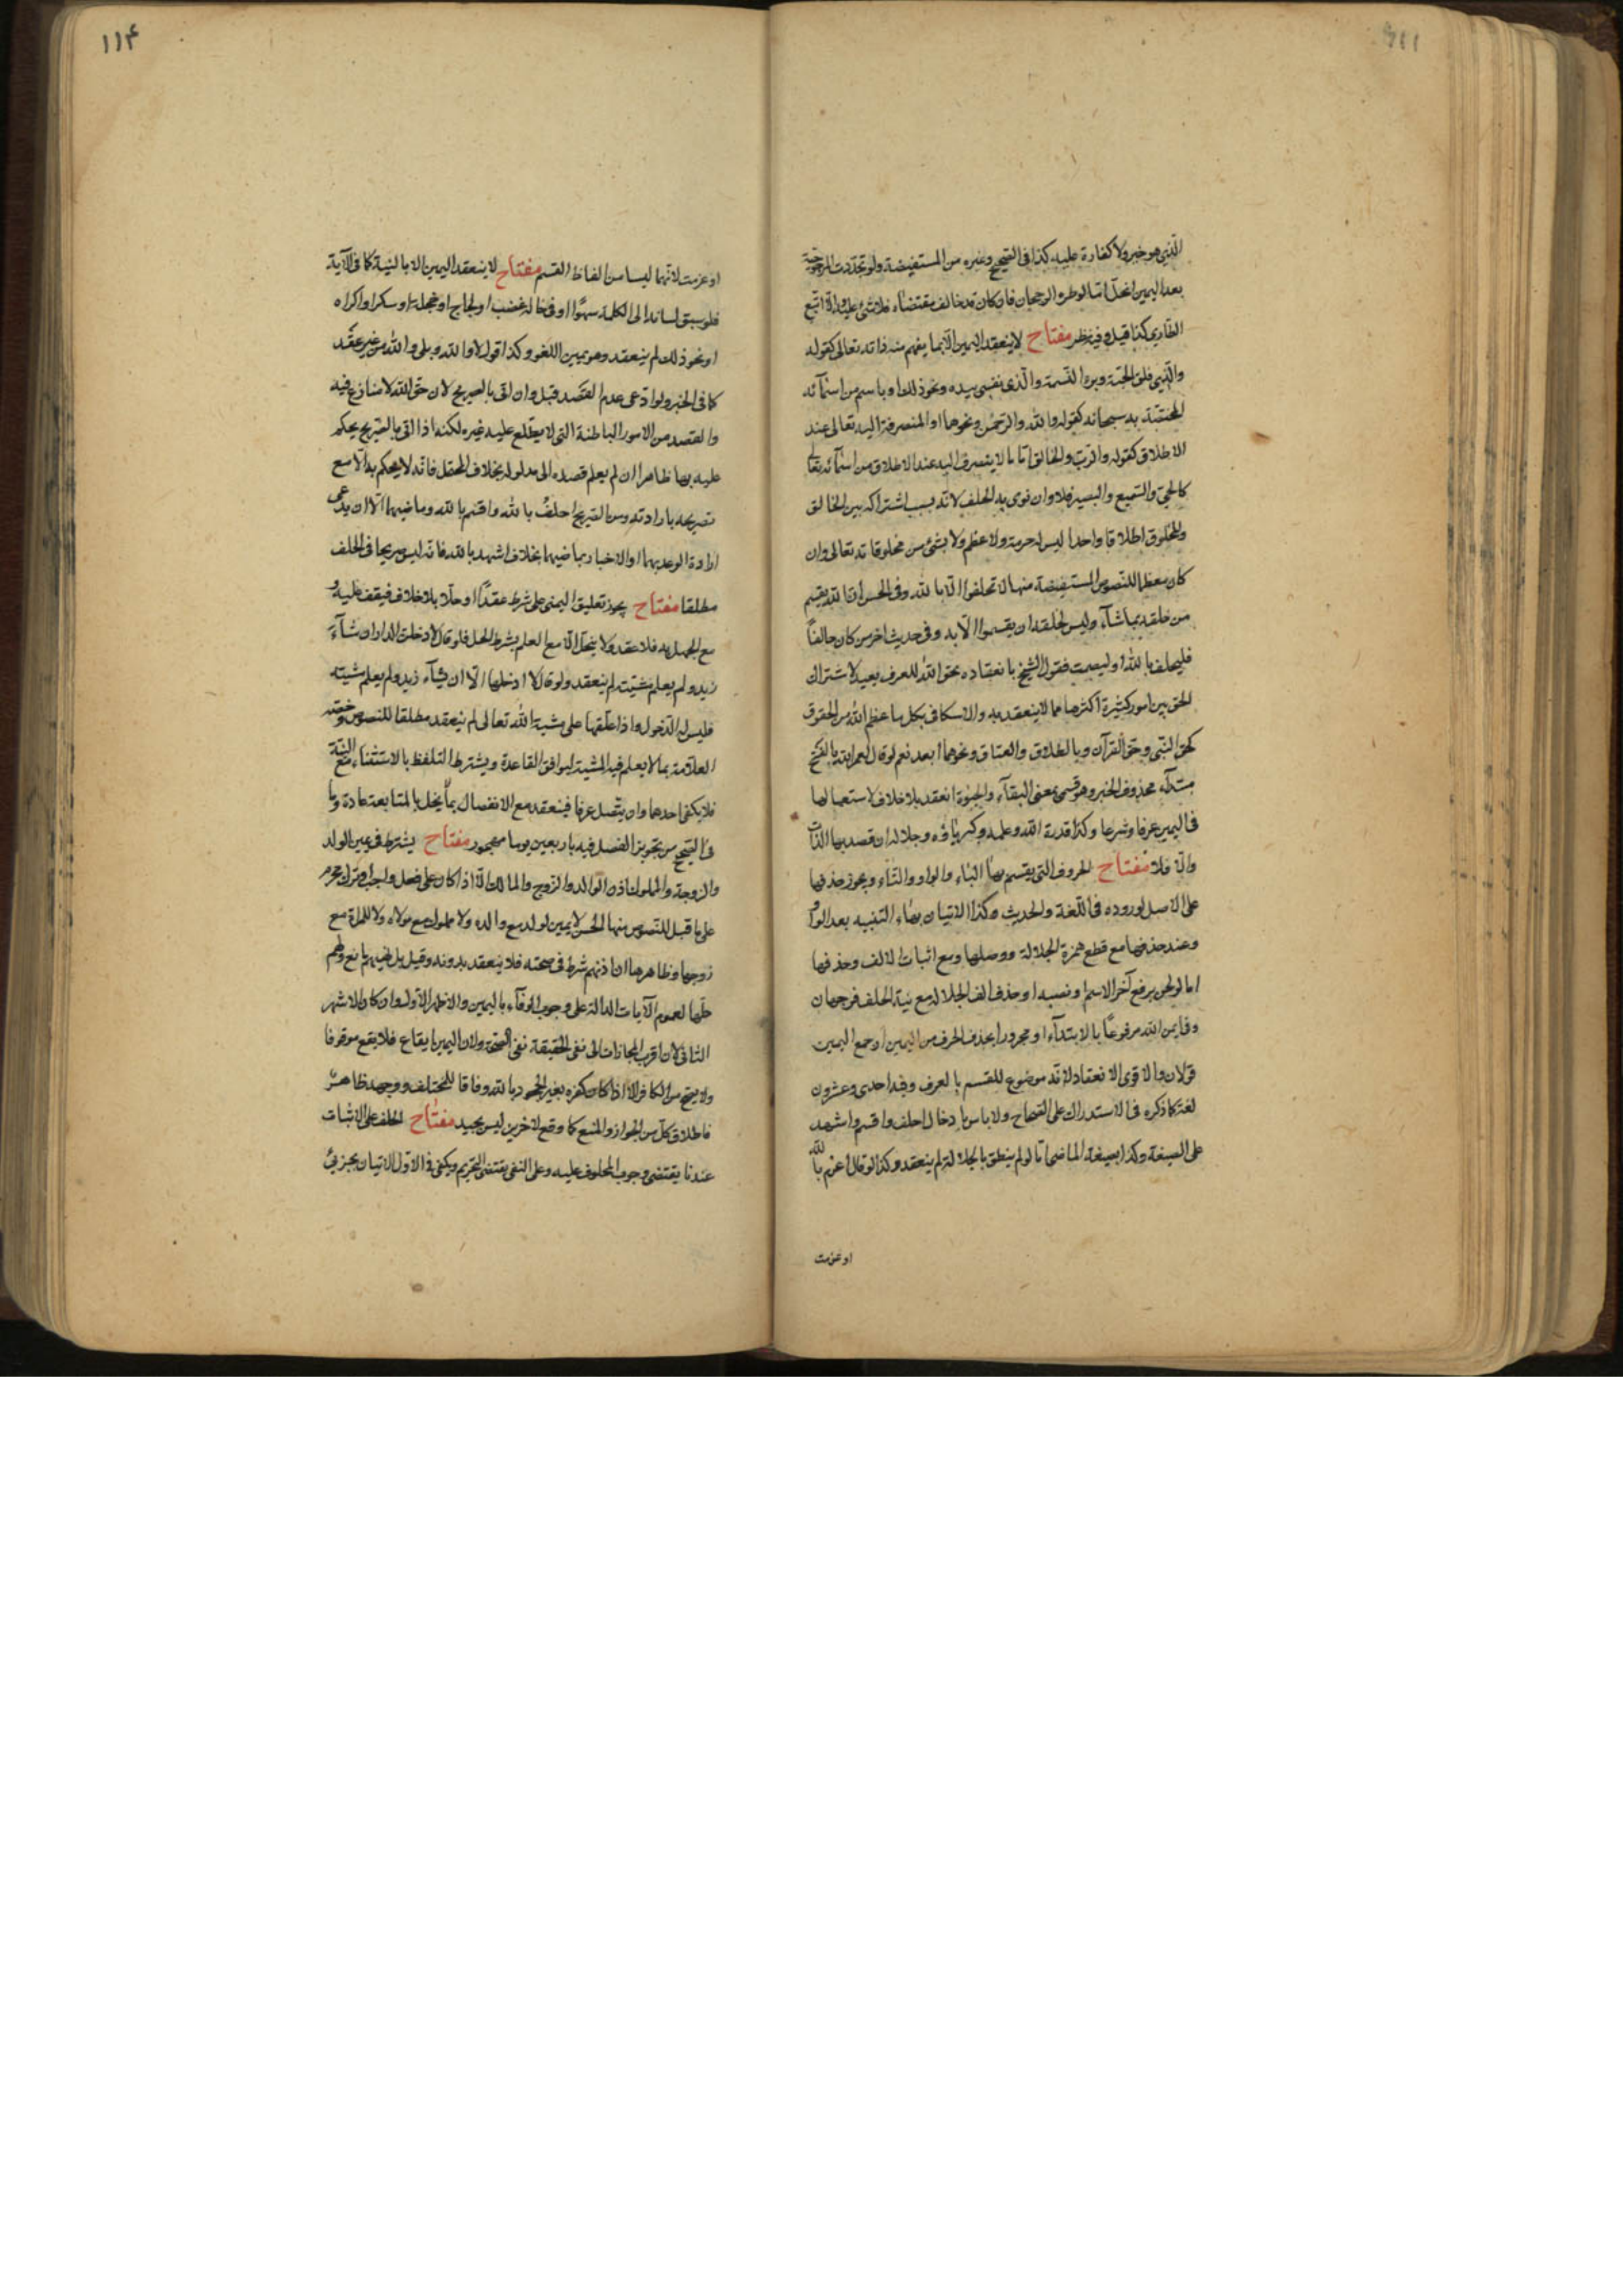 الّذي هو خير ولا كفارة عليه كذا في الصحيح وغيره من المستفيضة ولو تجدّدت المرجوحيّة
بعد اليمين انحلّ اتباعا لوطر والرجحان فان كان قد خالف مقتضاه فلا شيء عليه والّا اتبع
الطاري كذا قيل وفيه نظر مفتاح لا ينعقد اليمين الّا بما يفهم منه ذاته تعالى كقوله
والّذي فلق الحبّة وبرء النسمة والّذي نفسي بيده ونحو ذلك او باسم من اسمآئه
المختصّة به سبحانه كقوله والله والرّحمن ونحوهما او المنصرفة اليه تعالى عند
الاطلاق كقوله والربّ والخالق امّا ما لا ينصرف اليه عند الاطلاق من اسمآئه تعالى
كالحيّ والسّميع والبصير فلا وان نوى به الحلف لانّه بسبب اشتراكه بين الخالق
والمخلوق اطلاقا واحدا ليس له حرمة ولا عظم ولا بشئ من مخلوقاته تعالى وان
كان معظما للنّصوص المستفيضة منها لا تحلفوا الّا بالله وفي الحسن انّ لله يقسم
من خلقه بما شآء وليس لخلقه ان يقسموا الّا به وفي حديث اخر من كان حالفاً
فليحلف بالله او ليصمت فقول الشيخ بانعقاده بحق الله للعرف بعيد لاشتراك
الحق بين امور كثيرة اكثرها مما لا ينعقد به والاسكافي بكل ما عظم الله من الحقوق
كحق النّبي وحق القرآن وبالطلاق والعتاق ونحوهما ابعد نعم لو قال لعمر الله بالفتح
مبتدآء محذوف الخبر وهو قسمي بمعنى البقآء والحيٰوة انعقد بلا خلاف لاستعمالها
في اليمين عرفا وشرعا وكذا قدرة الله وعلمه وكبرياؤه وجلاله ان قصد بها الذّات
والّا فلا مفتاح الحروف التي يقسم بها البٰاء والواو والتٰاء ويجوز حذفها
على الاصل لوروده في اللّغة والحديث وكذا الاتيان بهاء التنبيه بعد الواو
وعند حذفها مع قطع همزة الجلالة ووصلها ومع اثبات الالف وحذفها
اما لو لحن برفع آخر الاسم او نصبه او حذف الف الجلالة مع نية الحلف فوجهان
وفي ايمن الله مرفوعًا بالابتدآء او مجرورا بحذف الحرف من اليمين او جمع اليمين
قولان والاقوى الانعقاد لانّه موضوع للقسم بالعرف وفيه احدى وعشرون
لغة كما ذكره في الاستدراك على الصحاح ولا باس بادخال احلف واقسم واشهد
على الصيغة وكذا بصيغة الماضي امّا لو لم ينطق بالجلالة لم ينعقد وكذا لو قال اعزم بالله
او عزمت
او عزمت لانّهما ليسا من الفاظ القسم مفتاح لا ينعقد اليمين الا بالنية كما في الآية
فلو سبق لسانه الى الكلمة سهوًا او في حالة غضب او لجاج او عجلة او سكر او اكراه
او نحو ذلك لم ينعقد وهو يمين اللغو وكذا قول لا والله وبلى والله من غير عقد
كما في الخبر ولو ادّعى عدم القصد قبل وان اتى بالصريح لان حق الله لا منازع فيه
والقصد من الامور الباطنة التي لا يطّلع عليه غيره لكنه اذا اتى بالصّريح يحكم
عليه بها ظاهرا ان لم يعلم قصده الى مدلوله بخلاف المحتمل فانّه لا يحكم به الّا مع
تصريحه بارادته ومن الصّريح احلف بالله واقسم بالله وماضيهما الّا ان يدّعي
ارادة الوعد بهما او الاخبار بماضيهما بخلاف اشهد بالله فانّه ليس صريحا في الحلف
مطلقا مفتاح يجوز تعليق اليمين على شرط عقدًا او حلّا بلا خلاف فيقف عليه و
مع الجهل به فلا عقد ولا ينحلّ الّا مع العلم بشرط الحل فلو قال لا دخلت الدار ان شآء
زيد ولم يعلم مشيّته لم ينعقد ولو قال لا ادخلها الّا ان يشآء زيد ولم يعلم مشيّته
فليس له الدّخول واذا علّقها على مشية الله تعالى لم ينعقد مطلقا للنصوص وخصّه
العلّامة بما لا يعلم فيه المشية ليوافق القاعدة ويشترط التلفظ بالاستثناء مع النيّة
فلا يكفي احدهما وان يتّصل عرفا فينعقد مع الانفصال بما يخل بالمتابعة عادة وما
في الصّحيح من تجويز الفصل فيه باربعين يوما مهجور مفتاح يشترط في يمين الولد
والزوجة والمملوك اذن الوالد والزوج والمالك الّا اذا كان على فعل واجب او ترك محرم
على ما قيل للنّصوص منها الحسن لا يمين لولد مع والده ولا مملوك مع مولاه ولا للمراة مع
زوجها وظاهرها ان اذنهم شرط في صحته فلا ينعقد بدونه وقيل بل نهيهم مانع ولهم
حلّها لعموم الآيات الدالة على وجوب الوفآء باليمين والاظهر الاوّل وان كان الاشهر
الثاني لان اقرب المجازات الى نفي الحقيقة نفي الصحّة ولان اليمين ايقاع فلا يقع موقوفا
ولا يصح من الكافر الّا اذا كان كفره بغير الجحود بالله وفاقا للمختلف ووجهه ظاهر
فاطلاق كلّ من الجواز والمنع كما وقع لاخرين ليس بجيد مفتاح الحلف على الاثبات
عندنا يقتضي وجوب المحلوف عليه وعلى النفي يقتضي التحريم ويكفي في الاوّل الاتيان بجزئيّ